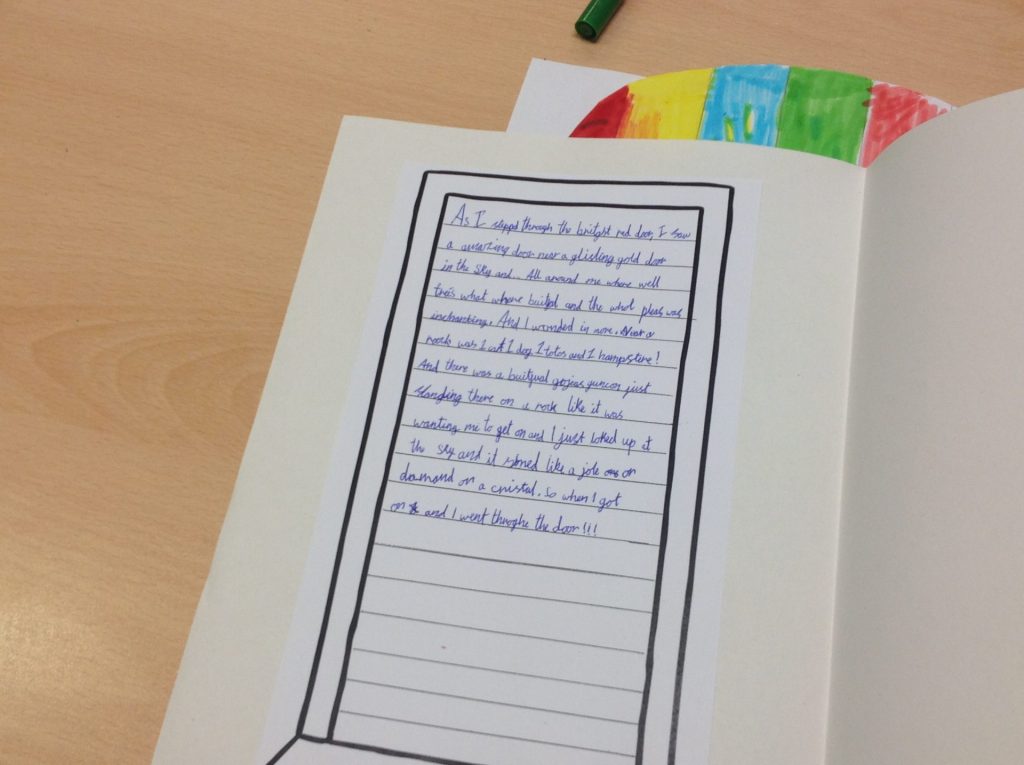 As I slippd through the britgst red door, I saw
a amazing door near a glisling gold door
in the sky and... All around me where well
treis what where buitful and the whol pleas was
inchanting. And I wonded in more. Near a
roock was 1 cat 1 dog 1 totos and 1 hampstire!
And there was a buitqual gojeas yunicon just
standing there on a rock like it was
wanting me to get on and I just loked up at
the sky and it shned like a jole or
damond or a cristal. So when I got
on and I went throghe the door!!!